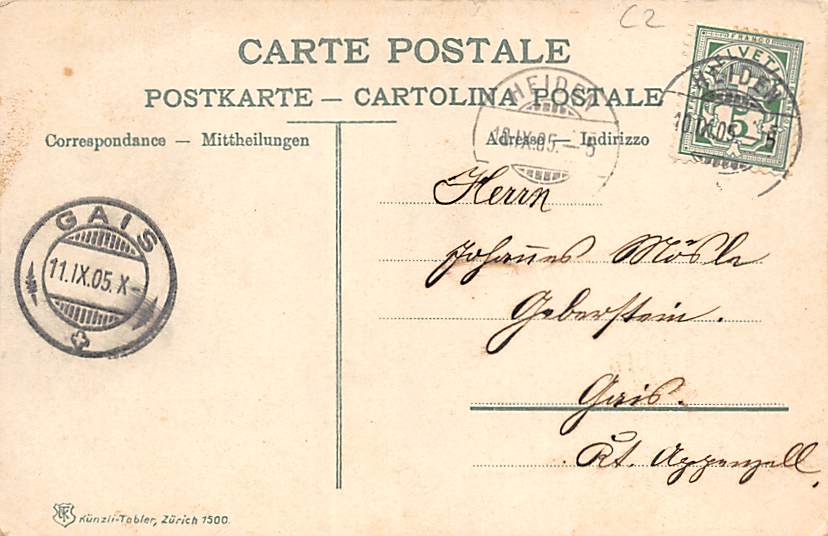 C2
CARTE POSTALE
POSTKARTE — CARTOLINA POSTALE
Correspondance — Mittheilungen
Adresse — Indirizzo
FRANCO
HELVETIA
5
HEIDEN
10.IX.05. — 5
HEIDEN
10.IX.05. — 5
GAIS
11.IX.05. X —
Herrn
Johannes Mösle
Geberstein.
Gais.
Kt. Appenzell
Künzli-Tobler, Zürich 1500.